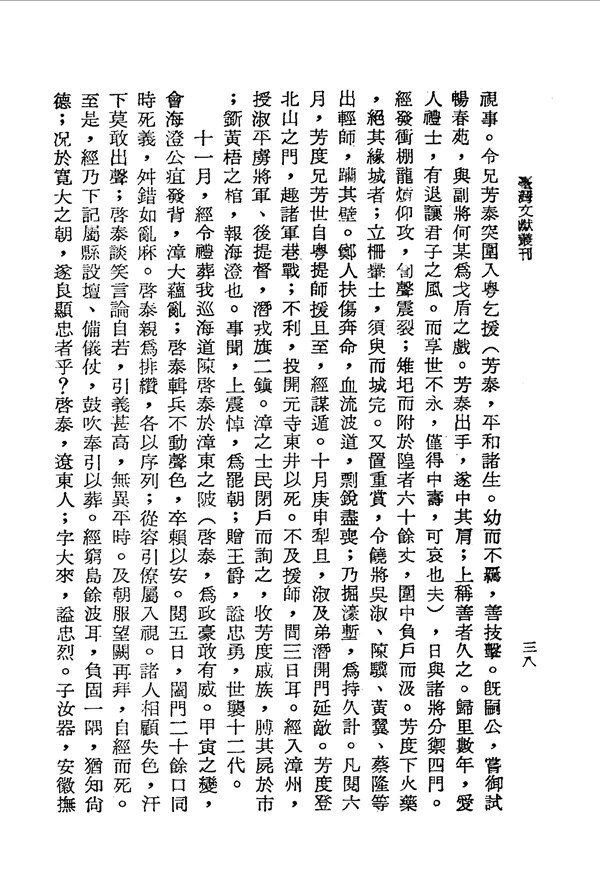 臺灣文獻叢刊
三八
視事。令兄芳泰突圍入粵乞援（芳泰，平和諸生。幼而不羈，善技擊。旣嗣公，嘗御試
暢春苑，與副將何某爲戈盾之戲。芳泰出手，遂中其肩；上稱善者久之。歸里數年，愛
人禮士，有退讓君子之風。而享世不永，僅得中壽，可哀也夫），日與諸將分禦四門。
經發衝棚龍熕仰攻，訇聲震裂；雉圯而附於隍者六十餘丈，圍中負戶而汲。芳度下火藥
，絕其緣城者；立柵壘土，須臾而城完。又置重賞，令饒將吳淑、陳驥、黃翼、蔡隆等
出輕師，躪其壁。鄭人扶傷奔命，血流波道，剽銳盡喪；乃掘濠塹，爲持久計。凡閱六
月，芳度兄芳世自粵提師援且至，經謀遁。十月庚申犁旦，淑及弟潛開門延敵。芳度登
北山之門，趣諸軍巷戰；不利，投開元寺東井以死。不及援師，間三日耳。經入漳州，
授淑平虜將軍、後提督，潛戎旗二鎮。漳之士民閉戶而詢之，收芳度戚族，膊其屍於市
；斲黃梧之棺，報海澄也。事聞，上震悼，爲罷朝；贈王爵，謚忠勇，世襲十二代。
十一月，經令禮葬我巡海道陳啓泰於漳東之陂（啓泰，爲政豪敢有威。甲寅之變，
會海澄公疽發背，漳大蘊亂；啓泰輯兵不動聲色，卒賴以安。閱五日，闔門二十餘口同
時死義，舛錯如亂麻。啓泰親爲排纘，各以序列；從容引僚屬入視。諸人相顧失色，汗
下莫敢出聲；啓泰談笑言論自若，引義甚高，無異平時。及朝服望闕再拜，自經而死。
至是，經乃下記屬縣設壇、備儀仗，鼓吹奉引以葬。經窮島餘波耳，負固一隅，猶知尙
德；況於寬大之朝，遂良顯忠者乎？啓泰，遼東人；字大來，謚忠烈。子汝器，安徽撫